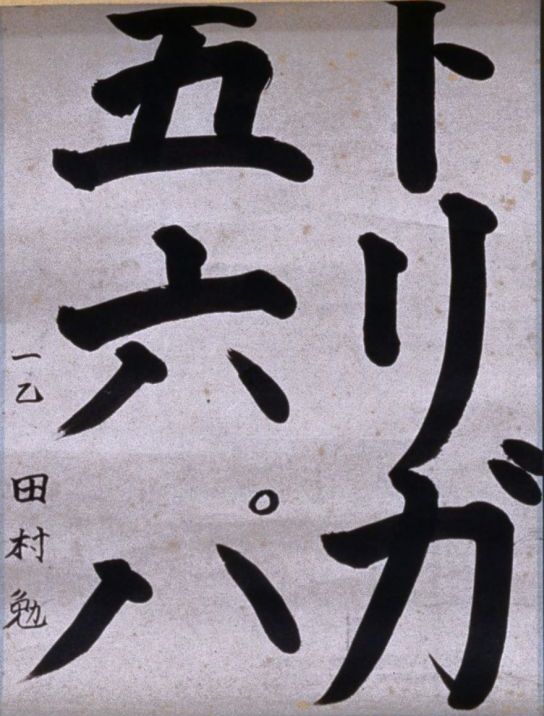 トリガ
五六パ
一乙 田村勉